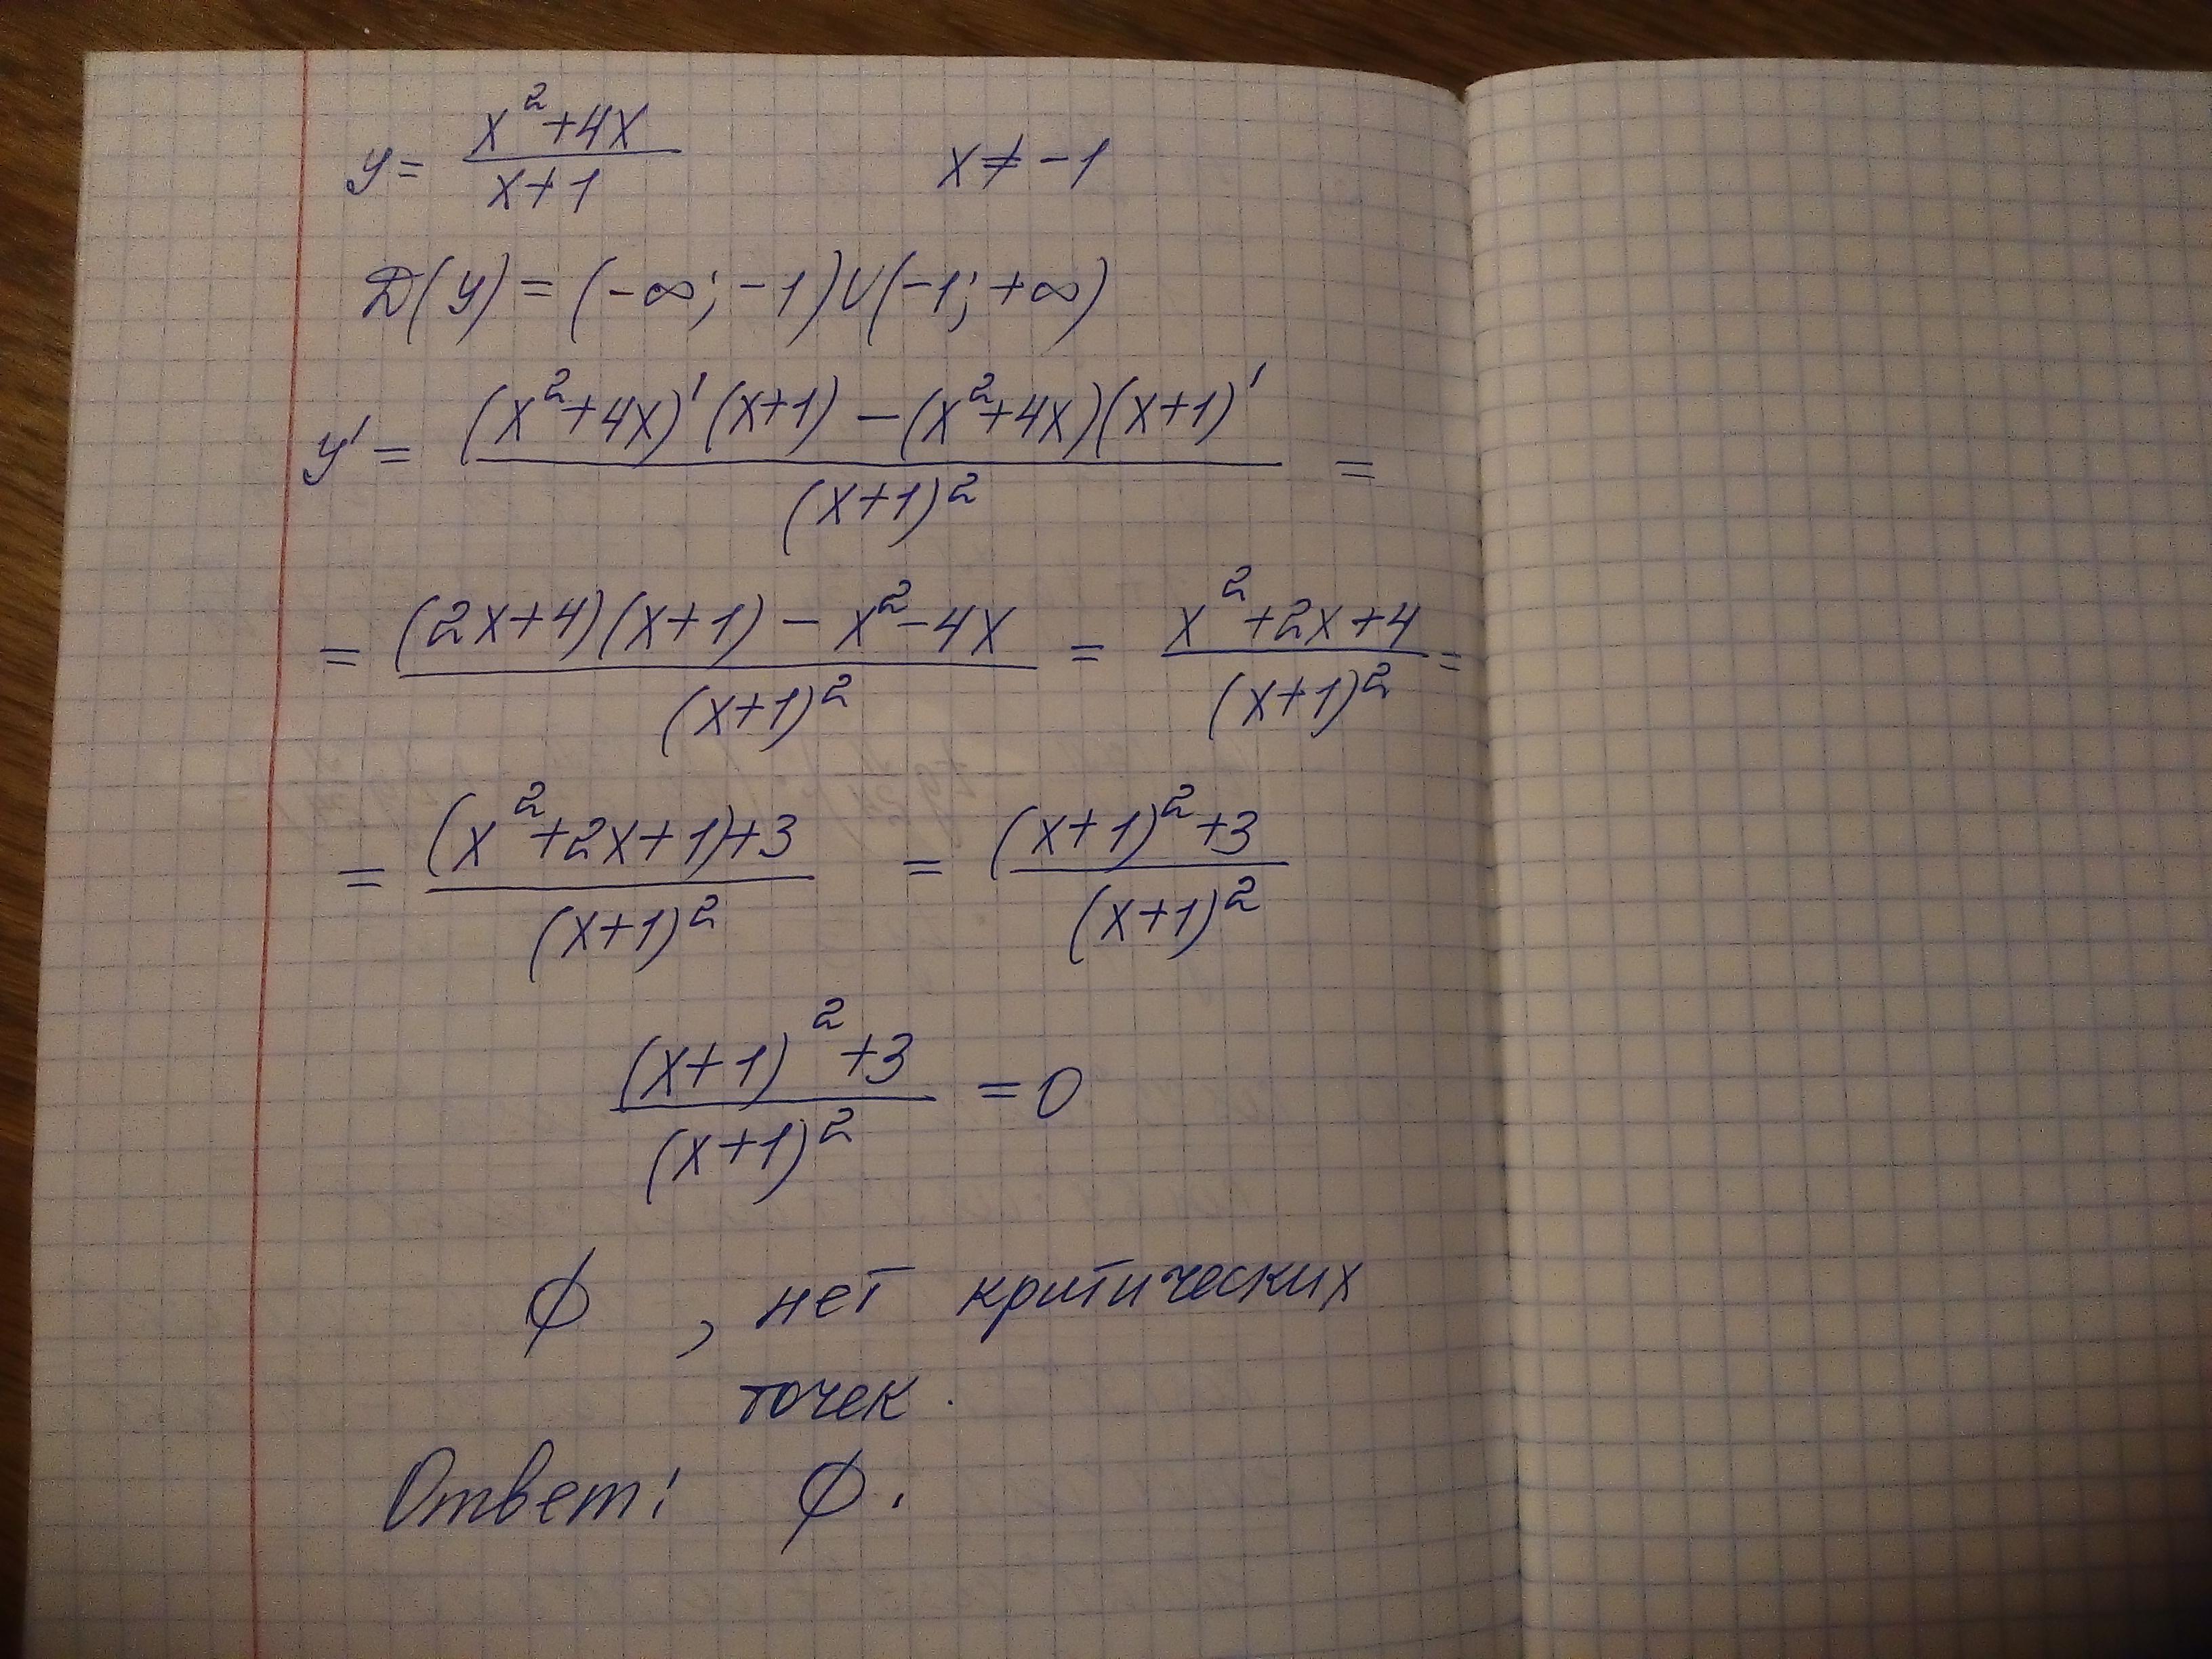 y = (x²+4x)/(x+1)    x ≠ -1
D(y) = (-∞; -1)∪(-1; +∞)
y' = ((x²+4x)'(x+1) - (x²+4x)(x+1)')/(x+1)² =
= ((2x+4)(x+1) - x² - 4x)/(x+1)² = (x²+2x+4)/(x+1)² =
= ((x²+2x+1)+3)/(x+1)² = ((x+1)²+3)/(x+1)²
((x+1)²+3)/(x+1)² = 0
∅, нет критических
точек.
Ответ: ∅.